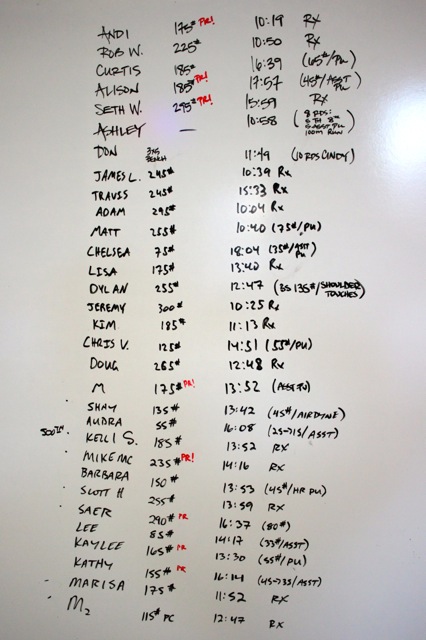 ANDI 175# PR! 10:19 RX
ROB W. 225# 10:50 RX
CURTIS 185# 16:39 (65#/PU)
ALISON 185# PR! 17:57 (45#/ASST PU)
SETH W. 295# PR! 15:59 RX
ASHLEY — 10:58 (8 RDS: 5 TH 5 ASST PU 100M RUN)
DON 315 BENCH 11:49 (10 RDS CINDY)
JAMES L. 245# 10:39 RX
TRAVIS 245# 15:33 RX
ADAM 295# 10:04 RX
MATT 255# 10:40 (75#/PU)
CHELSEA 75# 18:04 (35#/ASST PU)
LISA 175# 13:40 RX
DYLAN 255# 12:47 (BS 135#/SHOULDER TOUCHES)
JEREMY 300# 10:25 RX
KIM 185# 11:13 RX
CHRIS V. 125# 14:51 (55#/PU)
DOUG 265# 12:48 RX
M 175# PR! 13:52 (ASST PU)
SHAY 135# 13:42 (45#/AIRDYNE)
AUDRA 55# 16:08 (25→15/ASST)
500TH. KELLI S. 185# 13:52 RX
MIKE MC 235# PR! 14:16 RX
BARBARA 150# 13:53 (45#/HR PU)
SCOTT H 255# 13:59 RX
SAER 290# PR 16:37 (80#)
LEE 85# 14:17 (33#/ASST)
KAYLEE 165# PR 13:30 (55#/PU)
KATHY 155# PR 16:14 (45→35/ASST)
MARISA 175# 11:52 RX
M2 115# PC 12:47 RX